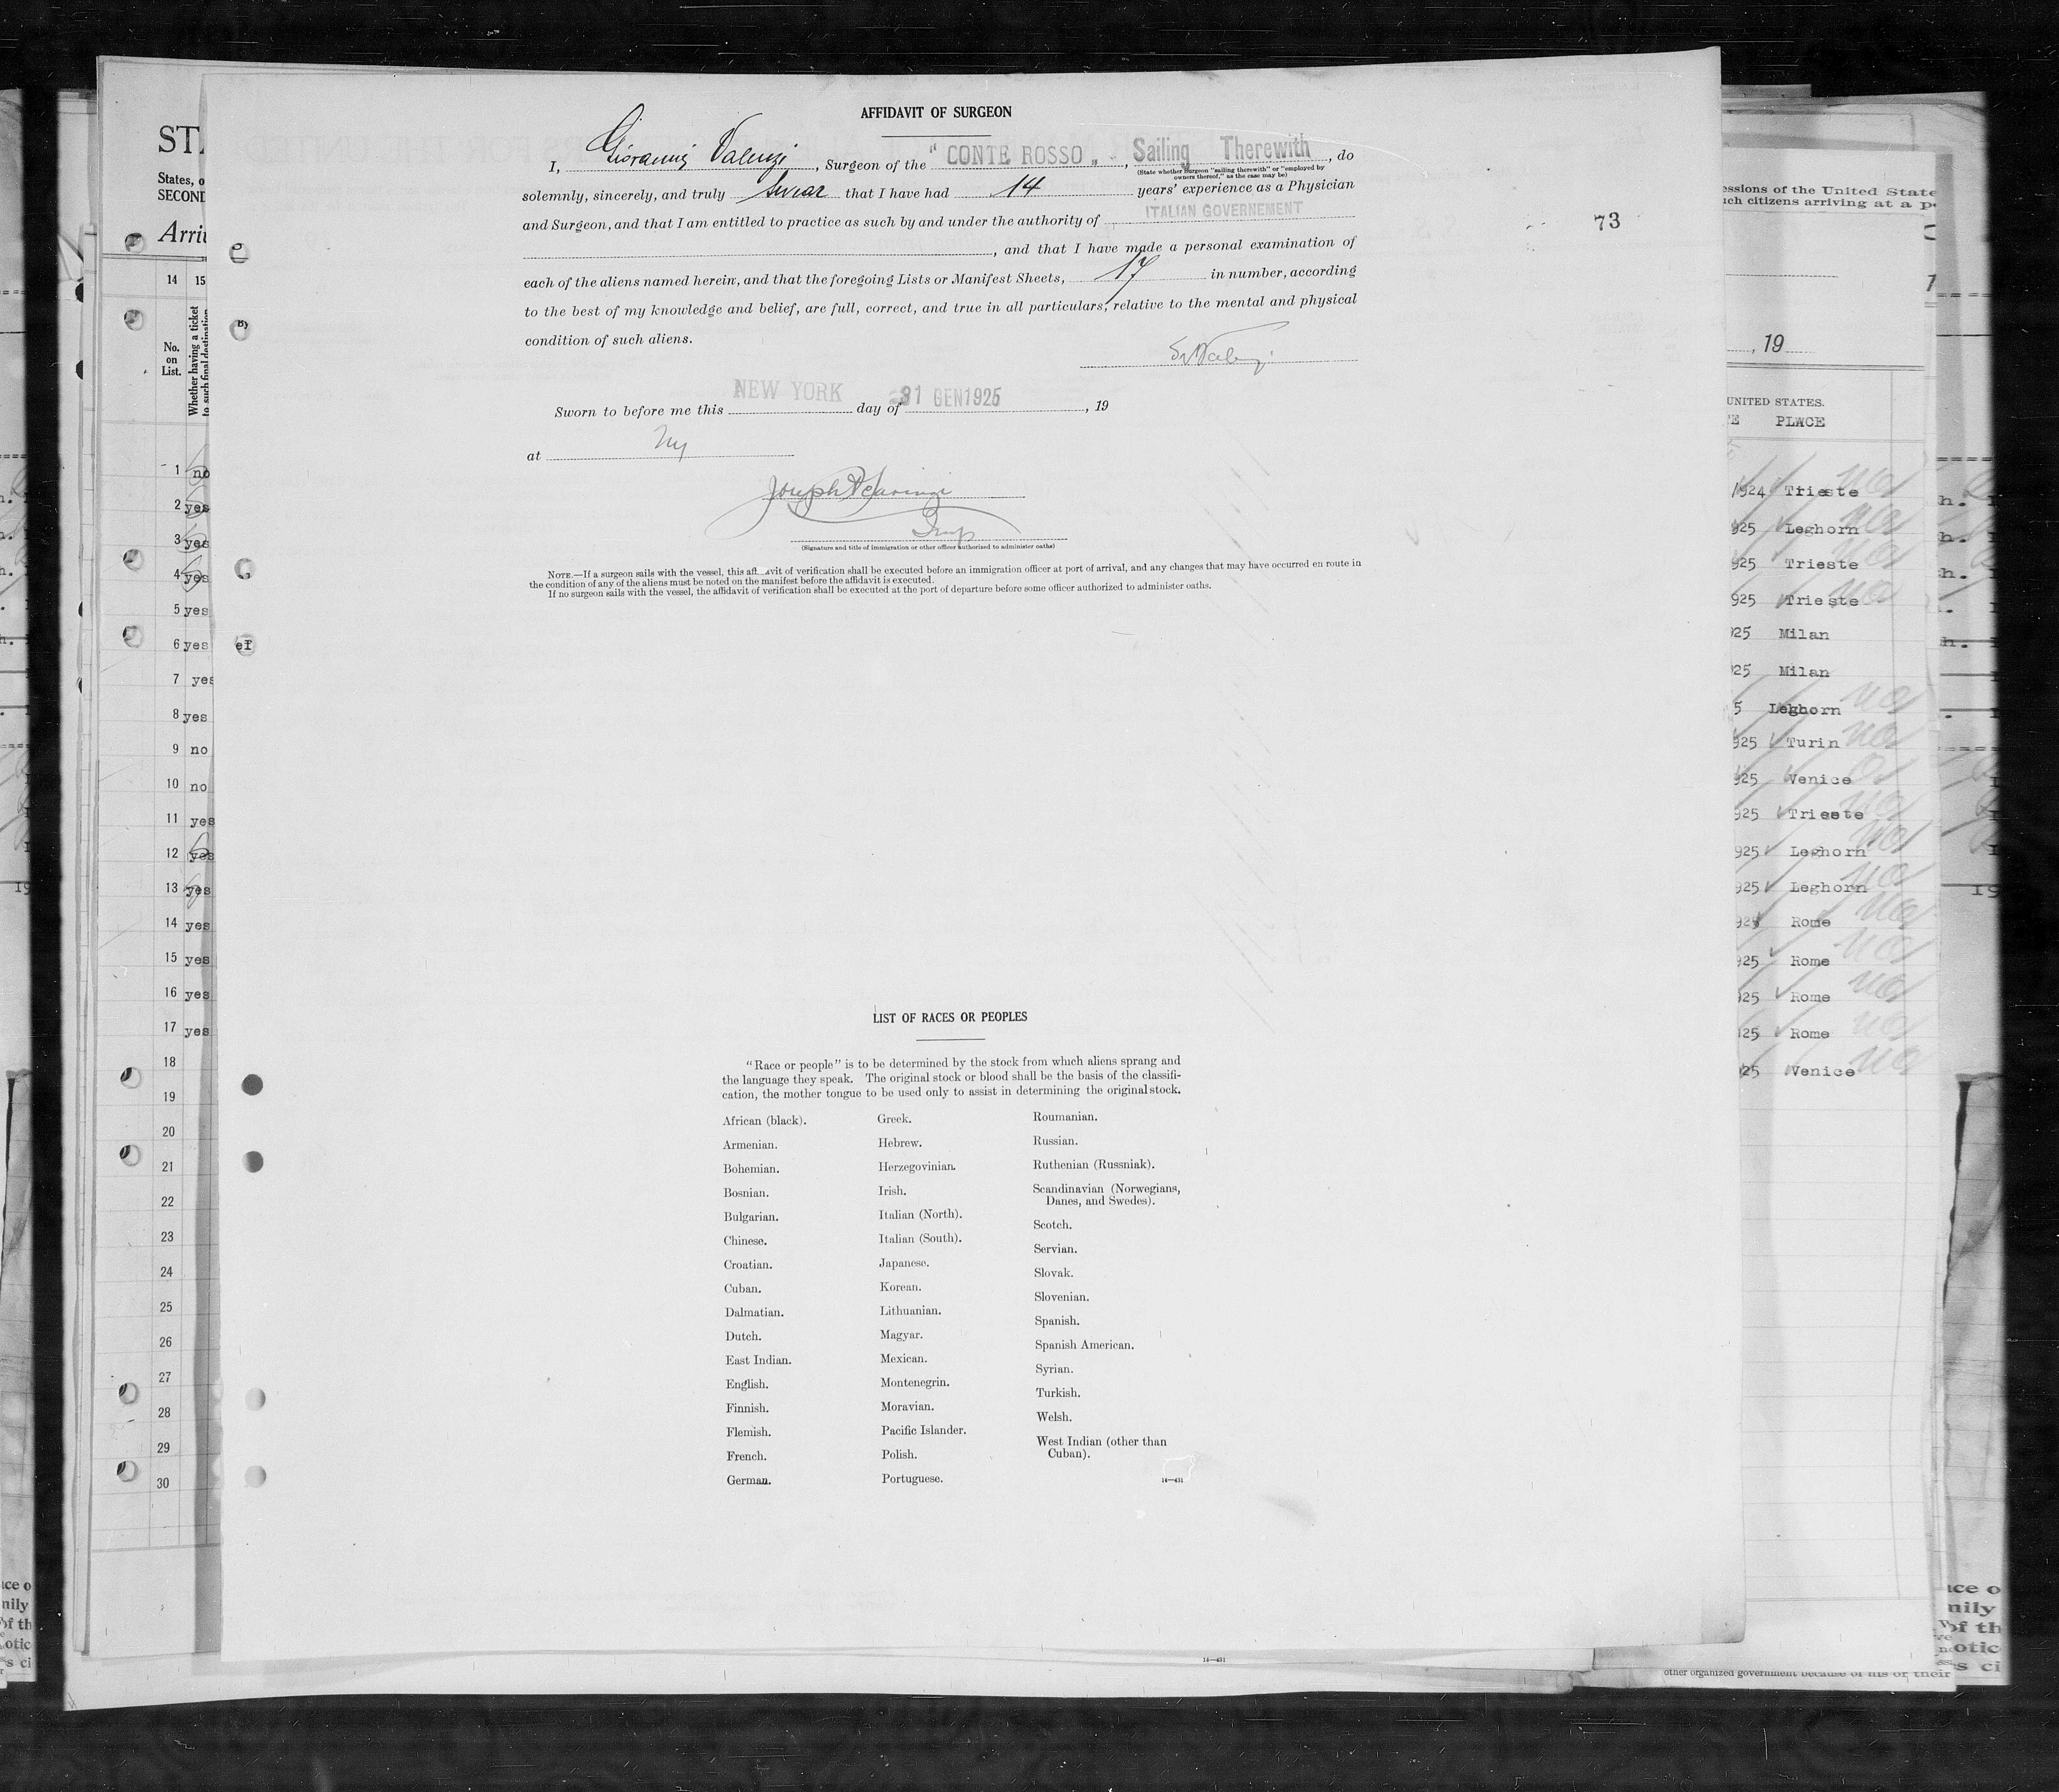 AFFIDAVIT OF SURGEON
I, Giovanni Valenzi, Surgeon of the "CONTE ROSSO", Sailing Therewith, do
(State whether Surgeon "sailing therewith" or "employed by
owners thereof," as the case may be)
solemnly, sincerely, and truly swear that I have had 14 years' experience as a Physician
and Surgeon, and that I am entitled to practice as such by and under the authority of ITALIAN GOVERNEMENT
, and that I have made a personal examination of
each of the aliens named herein, and that the foregoing Lists or Manifest Sheets, 17 in number, according
to the best of my knowledge and belief, are full, correct, and true in all particulars, relative to the mental and physical
condition of such aliens.
NEW YORK 31 GEN 1925
Sworn to before me this day of , 19
at NY
Joseph
Insp
(Signature and title of immigration or other officer authorized to administer oaths)
NOTE.—If a surgeon sails with the vessel, this affidavit of verification shall be executed before an immigration officer at port of arrival, and any changes that may have occurred en route in
the condition of any of the aliens must be noted on the manifest before the affidavit is executed.
If no surgeon sails with the vessel, the affidavit of verification shall be executed at the port of departure before some officer authorized to administer oaths.
73
LIST OF RACES OR PEOPLES
"Race or people" is to be determined by the stock from which aliens sprang and
the language they speak. The original stock or blood shall be the basis of the classifi-
cation, the mother tongue to be used only to assist in determining the original stock.
African (black).
Armenian.
Bohemian.
Bosnian.
Bulgarian.
Chinese.
Croatian.
Cuban.
Dalmatian.
Dutch.
East Indian.
English.
Finnish.
Flemish.
French.
German.
Greek.
Hebrew.
Herzegovinian.
Irish.
Italian (North).
Italian (South).
Japanese.
Korean.
Lithuanian.
Magyar.
Mexican.
Montenegrin.
Moravian.
Pacific Islander.
Polish.
Portuguese.
Roumanian.
Russian.
Ruthenian (Russniak).
Scandinavian (Norwegians,
Danes, and Swedes).
Scotch.
Servian.
Slovak.
Slovenian.
Spanish.
Spanish American.
Syrian.
Turkish.
Welsh.
West Indian (other than
Cuban).
14—431
14—431
States, o
SECOND
14 15
No.
on
List.
Whether having a ticket
to such final destination
1 no
2 yes
3 yes
4 yes
5 yes
6 yes
7 yes
8 yes
9 no
10 no
11 yes
12 yes
13 yes
14 yes
15 yes
16 yes
17 yes
18
19
20
21
22
23
24
25
26
27
28
29
30
essions of the United State
uch citizens arriving at a p
, 19
UNITED STATES.
PLACE
1924 Trieste no
925 Leghorn no
925 Trieste no
925 Trieste no
925 Milan
25 Milan
5 Leghorn no
925 Turin no
925 Venice
925 Trieste no
925 Leghorn no
925 Leghorn no
925 Rome no
925 Rome no
925 Rome no
125 Rome no
25 Venice no
other organized government because of his or their